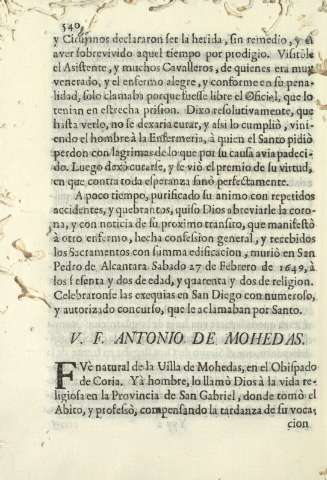 540
y Cirujanos declararon ser la herida, sin remedio, y
aver sobrevivido aquel tiempo por prodigio. Visitòle
el Asistente, y muchos Cavalleros, de quienes era muy
venerado, y el enfermo alegre, y conforme en su pena-
lidad, solo clamaba porque fuesse libre el Oficial, que lo
tenian en estrecha prision. Dixo resolutivamente, que
hasta verlo, no se dexaria curar, y assi lo cumpliò, vini-
endo el hombre à la Enfermeria, à quien el Santo pidiò
perdon con lagrimas de lo que por su causa avia padeci-
do. Luego dexò curarse, y se viò el premio de su virtud,
en que contra toda esperanza sanò perfectamente.
A poco tiempo, purificado su animo con repetidos
accidentes, y quebrantos, quiso Dios abreviarle la coro-
na, y con noticia de su proximo transito, que manifestò
à otro enfermo, hecha confession general, y recebidos
los Sacramentos con summa edificacion, muriò en San
Pedro de Alcantara Sabado 27 de Febrero de 1649, à
los sesenta y dos de edad, y quarenta y dos de religion.
Celebraronse las exequias en San Diego con numeroso,
y autorizado concurso, que le aclamaban por Santo.
V. F. ANTONIO DE MOHEDAS.
FVè natural de la Uilla de Mohedas, en el Obispado
de Coria. Yà hombre, lo llamò Dios à la vida re-
ligiosa en la Provincia de San Gabriel, donde tomò el
Abito, y professò, compensando la tardanza de su voca-
cion